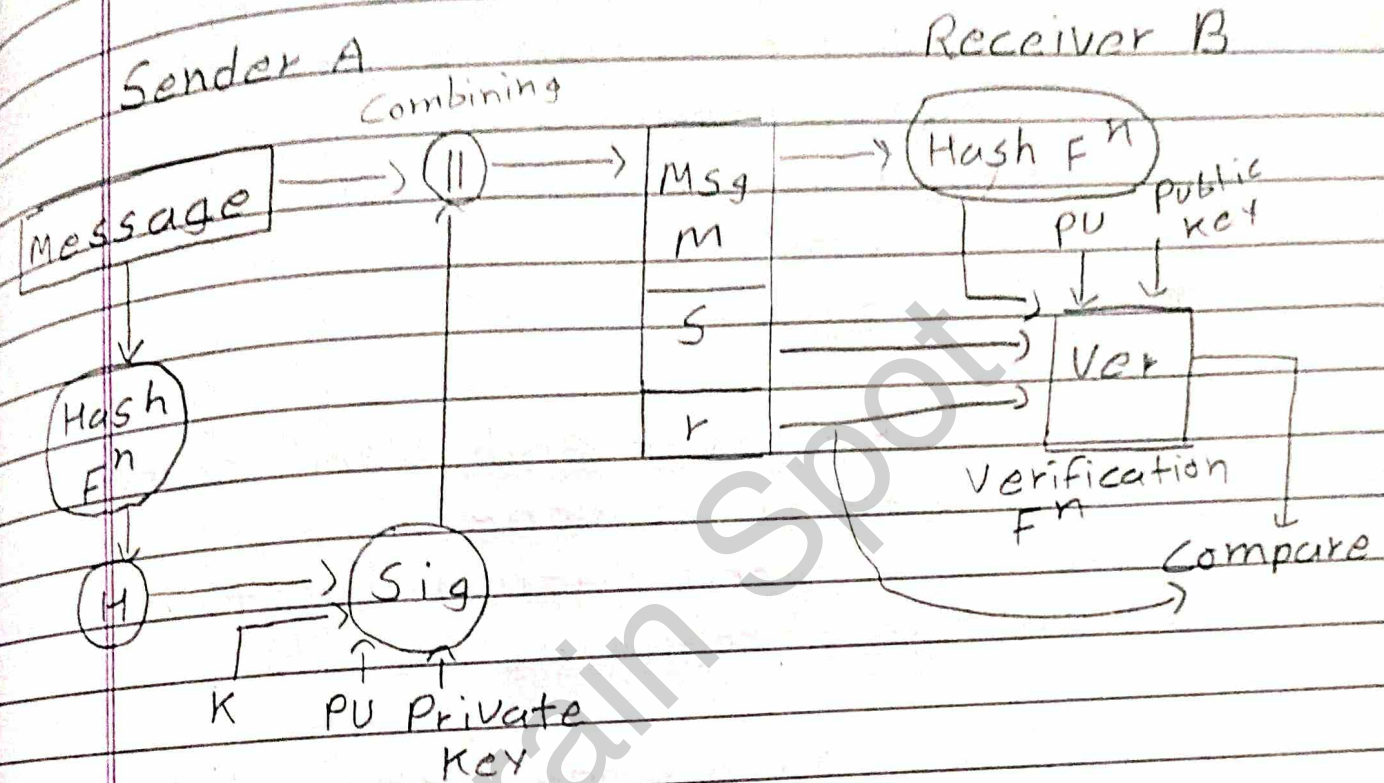 Sender A
Receiver B
Combining
Message
||
Msg
m
S
r
Hash Fⁿ
PU
Public
Key
Ver
Verification
Fⁿ
Compare
Hash
Fⁿ
H
Sig
K
PU
Private
Key
rain Spot